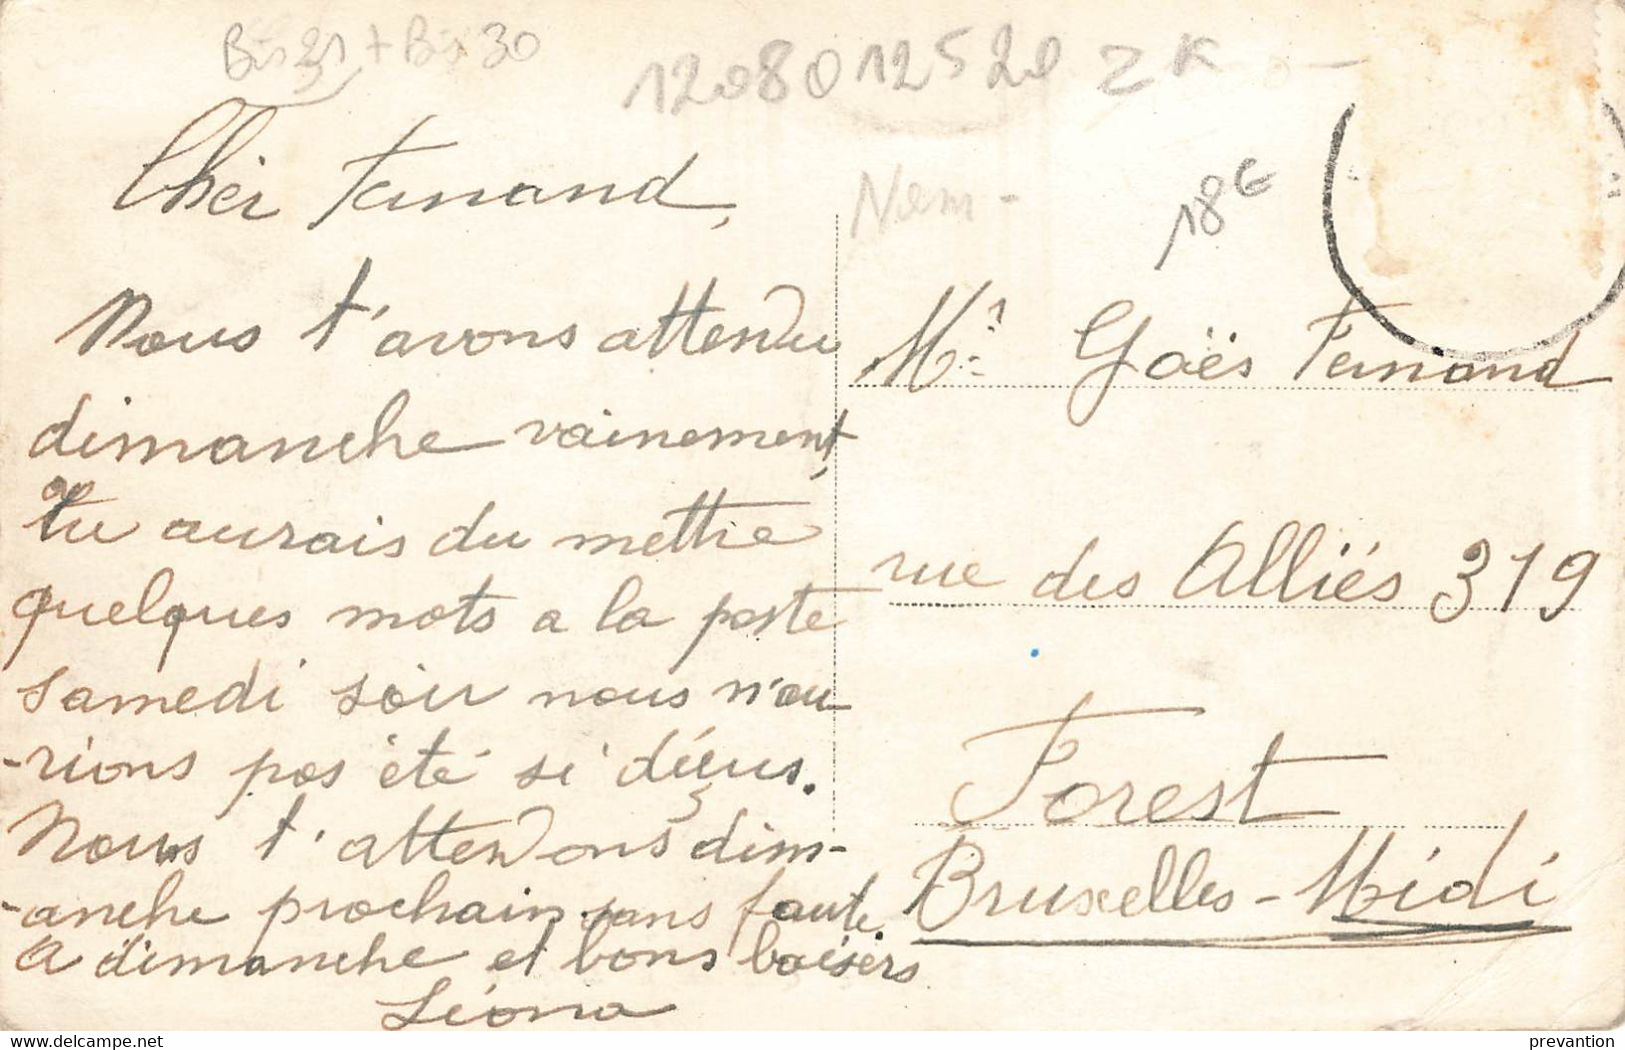 Bis 31 + Bis 30
12080 12520 ZK
18€
Cher Fernand,
Nous t'avons attendu
dimanche vainement,
tu aurais du mettre
quelques mots a la poste
samedi soir nous n'au
-rions pas été si déçus.
Nous t'attendons dim-
-anche prochain sans faute.
A dimanche et bons baisers
Léona
Mr Goës Fernand
rue des Alliés 319
Forest
Bruxelles-Midi
www.delcampe.net
prevantion